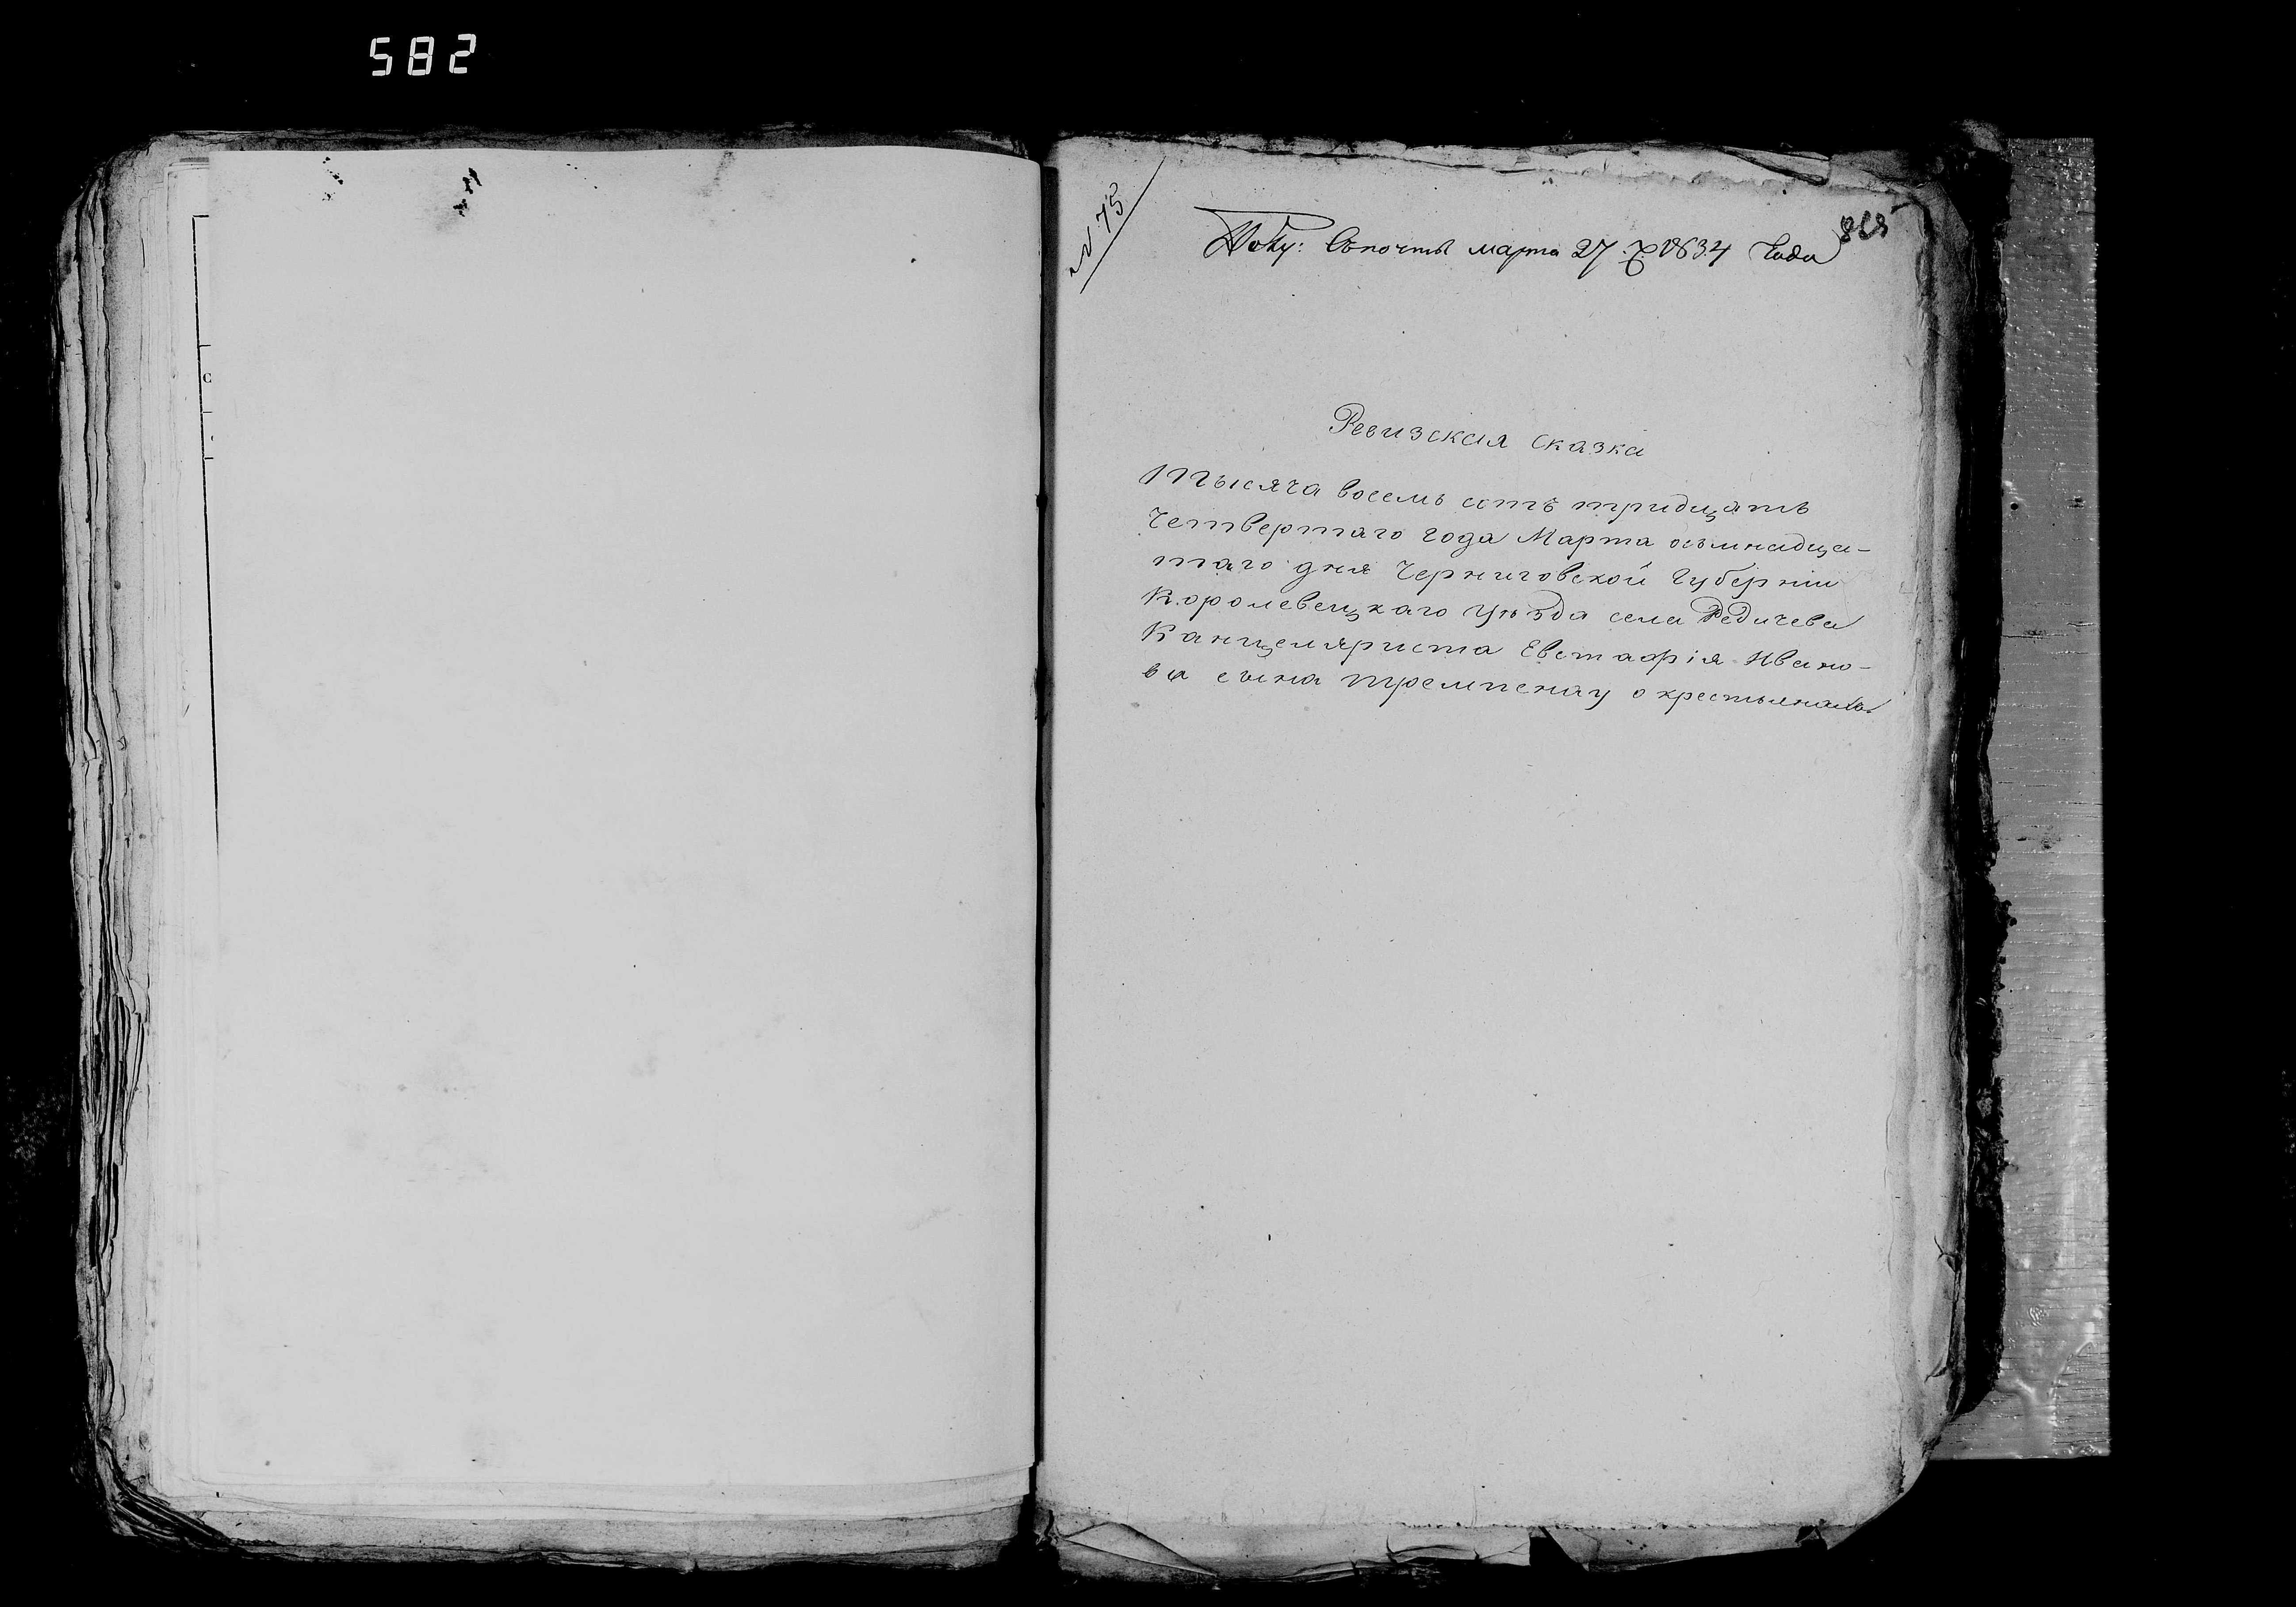 582
N 75
Полу: съ почты марта 27. 1834 Года
Ревизская сказка
Тысяча восемь сотъ тридцать
Четвертаго года Марта осьмнадца-
таго дня Черниговской Губерніи
Кролевецкаго уѣзда села Редичева
Канцеляриста Евстафія Ивано-
ва сына о крестьянахъ